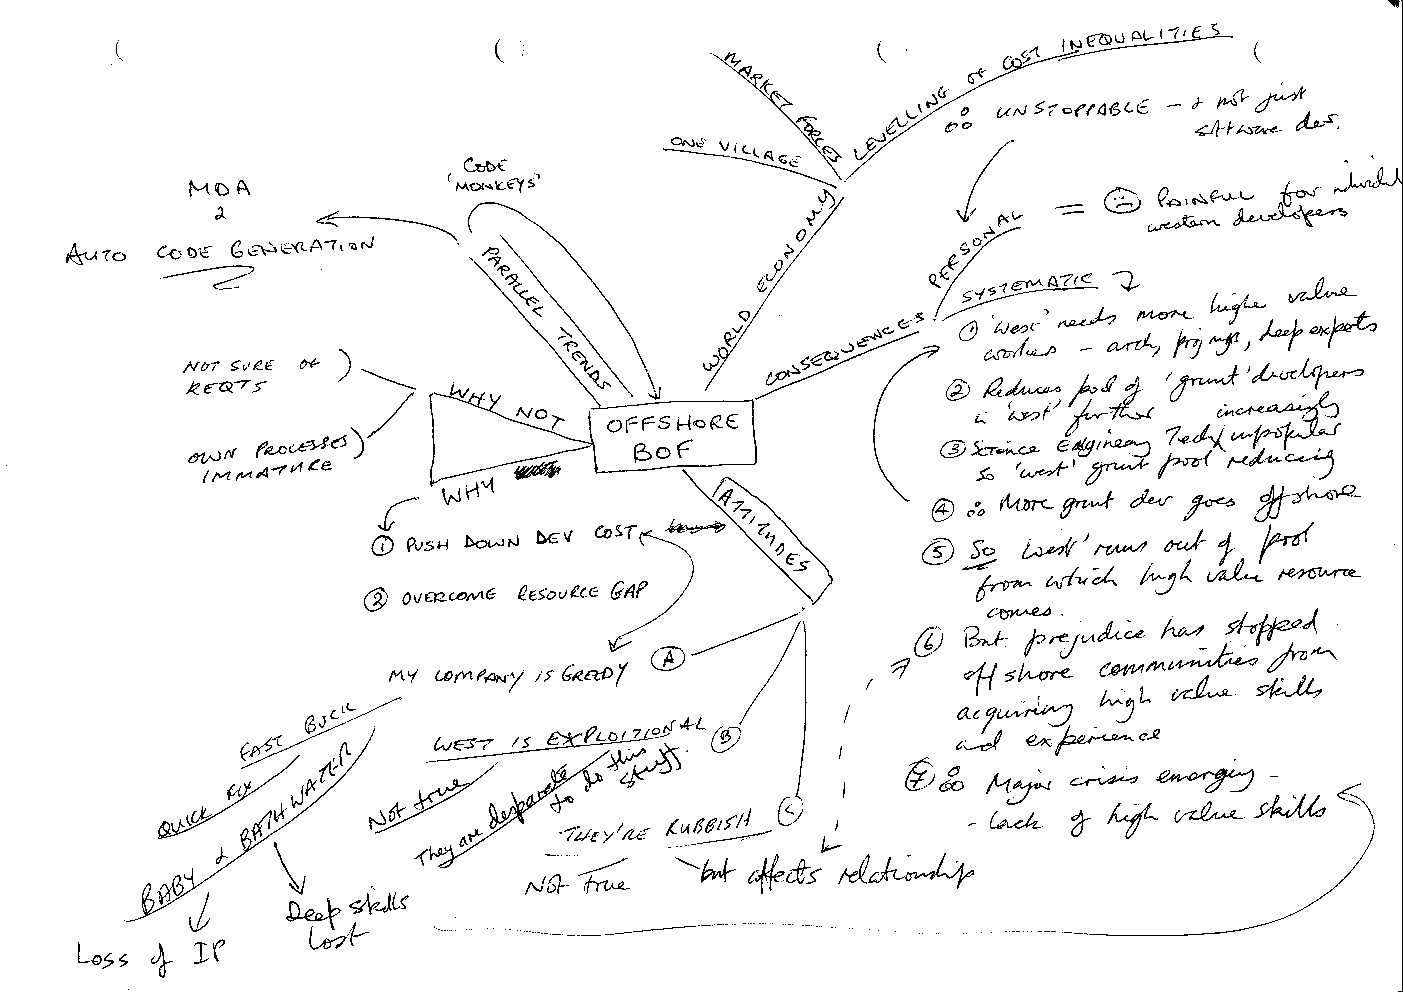 MARKET FORCES
ONE VILLAGE
LEVELLING OF COST INEQUALITIES
∴ UNSTOPPABLE - & not just
software dev.
WORLD ECONOMY
CODE
'MONKEYS'
MDA
&
AUTO CODE GENERATION
PARALLEL TRENDS
PERSONAL = ☹ PAINFUL for individual
western developers
CONSEQUENCES
SYSTEMATIC
① 'West' needs more high value
workers - arch, proj mgrs, deep experts
② Reduces pool of 'grunt' developers
in 'west' further
increasingly
③ Science Engineering Tech/unpopular
so 'west' grunt pool reducing
④ ∴ More grunt dev goes offshore
⑤ So 'West' runs out of pool
from which high value resource
comes.
⑥ But prejudice has stopped
offshore communities from
acquiring high value skills
and experience
⑦ ∴ Major crisis emerging -
- Lack of high value skills
NOT SURE OF
REQTS
OWN PROCESSES
IMMATURE
WHY NOT
WHY
OFFSHORE
BOF
① PUSH DOWN DEV COST
② OVERCOME RESOURCE GAP
ATTITUDES
MY COMPANY IS GREEDY Ⓐ
FAST BUCK
QUICK FIX
BABY & BATHWATER
Loss of IP
Deep skills
lost
WEST IS EXPLOITIONAL Ⓑ
Not true
They are desperate
to do this
stuff.
THEY'RE RUBBISH Ⓒ
NOT True
but affects relationship